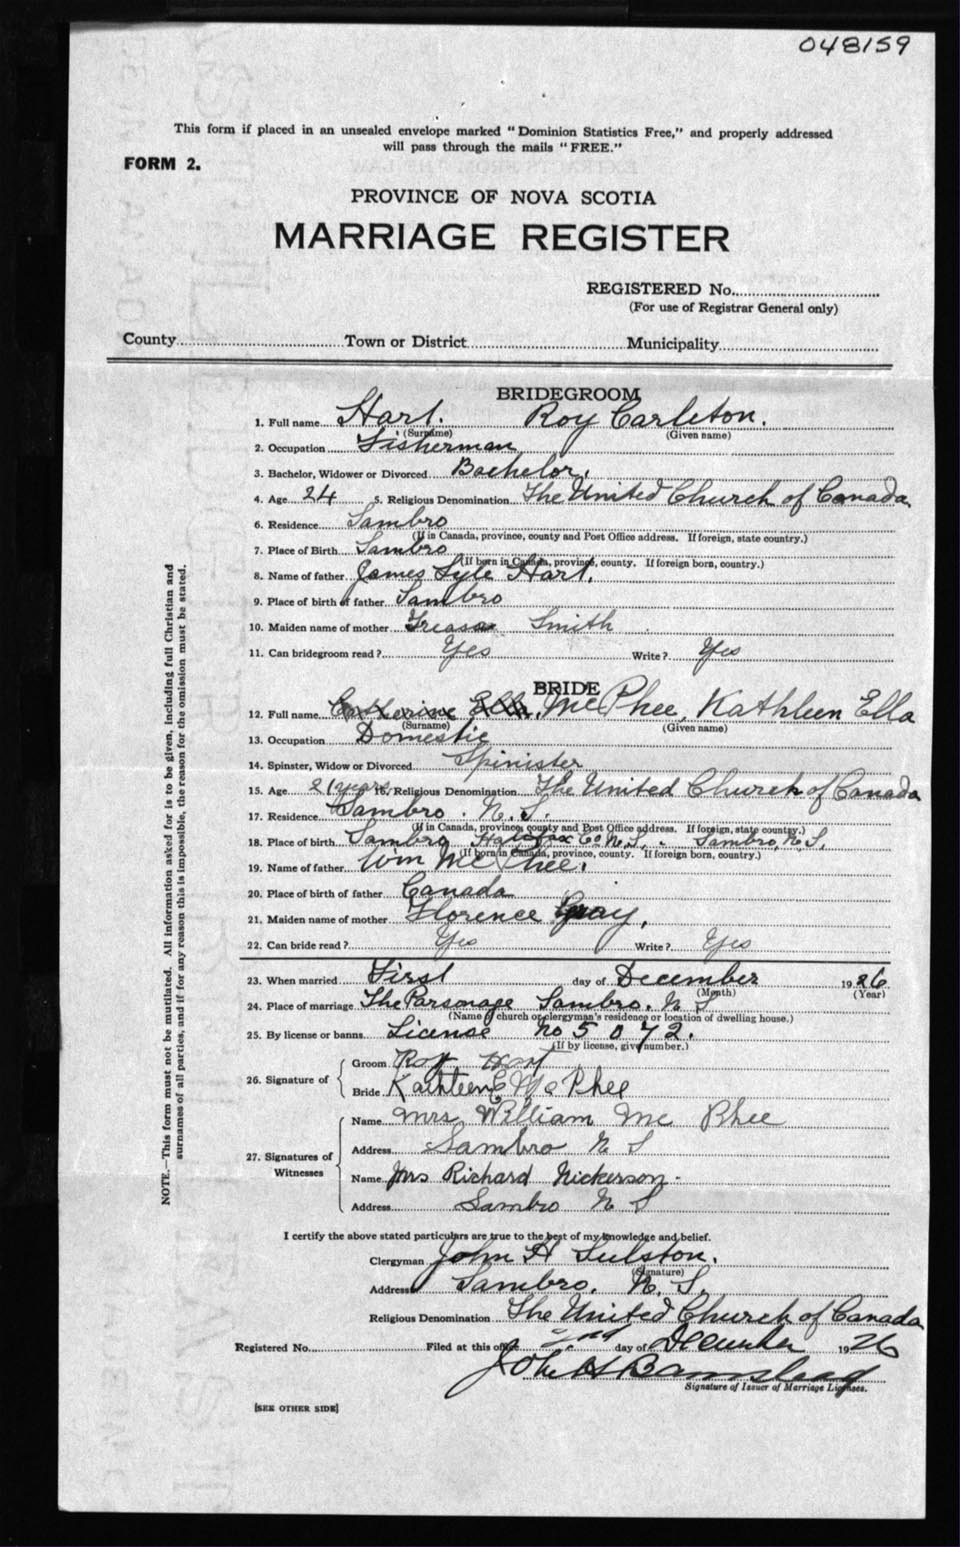 048159
This form if placed in an unsealed envelope marked "Dominion Statistics Free," and properly addressed
will pass through the mails "FREE."
FORM 2.
PROVINCE OF NOVA SCOTIA
MARRIAGE REGISTER
REGISTERED No.
(For use of Registrar General only)
County Town or District Municipality
BRIDEGROOM
1. Full name Hart. Roy Carleton.
(Surname) (Given name)
2. Occupation Fisherman
3. Bachelor, Widower or Divorced Bachelor.
4. Age 24 5. Religious Denomination The United Church of Canada
6. Residence Sambro
(If in Canada, province, county and Post Office address. If foreign, state country.)
7. Place of Birth Sambro
(If born in Canada, province, county. If foreign born, country.)
8. Name of father James Lyle Hart.
9. Place of birth of father Sambro
10. Maiden name of mother Smith
11. Can bridegroom read? Yes Write? Yes
BRIDE
12. Full name Catherine Ella. McPhee, Kathleen Ella
(Surname) (Given name)
13. Occupation Domestic
14. Spinster, Widow or Divorced Spinister
15. Age 21 years 16. Religious Denomination The United Church of Canada
17. Residence Sambro. N. S.
(If in Canada, province, county and Post Office address. If foreign, state country.)
18. Place of birth Sambro Halifax Co. N. S. Sambro, N. S.
(If born in Canada, province, county. If foreign born, country.)
19. Name of father Wm McPhee.
20. Place of birth of father Canada
21. Maiden name of mother Florence Gray,
22. Can bride read? Yes Write? Yes
23. When married First day of December 1926
(Month) (Year)
24. Place of marriage The Parsonage Sambro. N S
(Name of church or clergyman's residence or location of dwelling house.)
25. By license or banns License No 5072.
(If by license, give number.)
26. Signature of Groom Roy Hart
Bride Kathleen E McPhee
27. Signatures of Witnesses Name Mrs William McPhee
Address Sambro N S
Name Mrs Richard Nickerson.
Address Sambro N S
I certify the above stated particulars are true to the best of my knowledge and belief.
Clergyman John H
(Signature)
Address Sambro. N. S.
Religious Denomination The United Church of Canada
Registered No. Filed at this office 2nd day of December 1926
John H Barnstead
Signature of Issuer of Marriage Licenses.
[SEE OTHER SIDE]
NOTE.—This form must not be mutilated. All information asked for is to be given, including full Christian and
surnames of all parties, and if for any reason this is impossible, the reason for the omission must be stated.